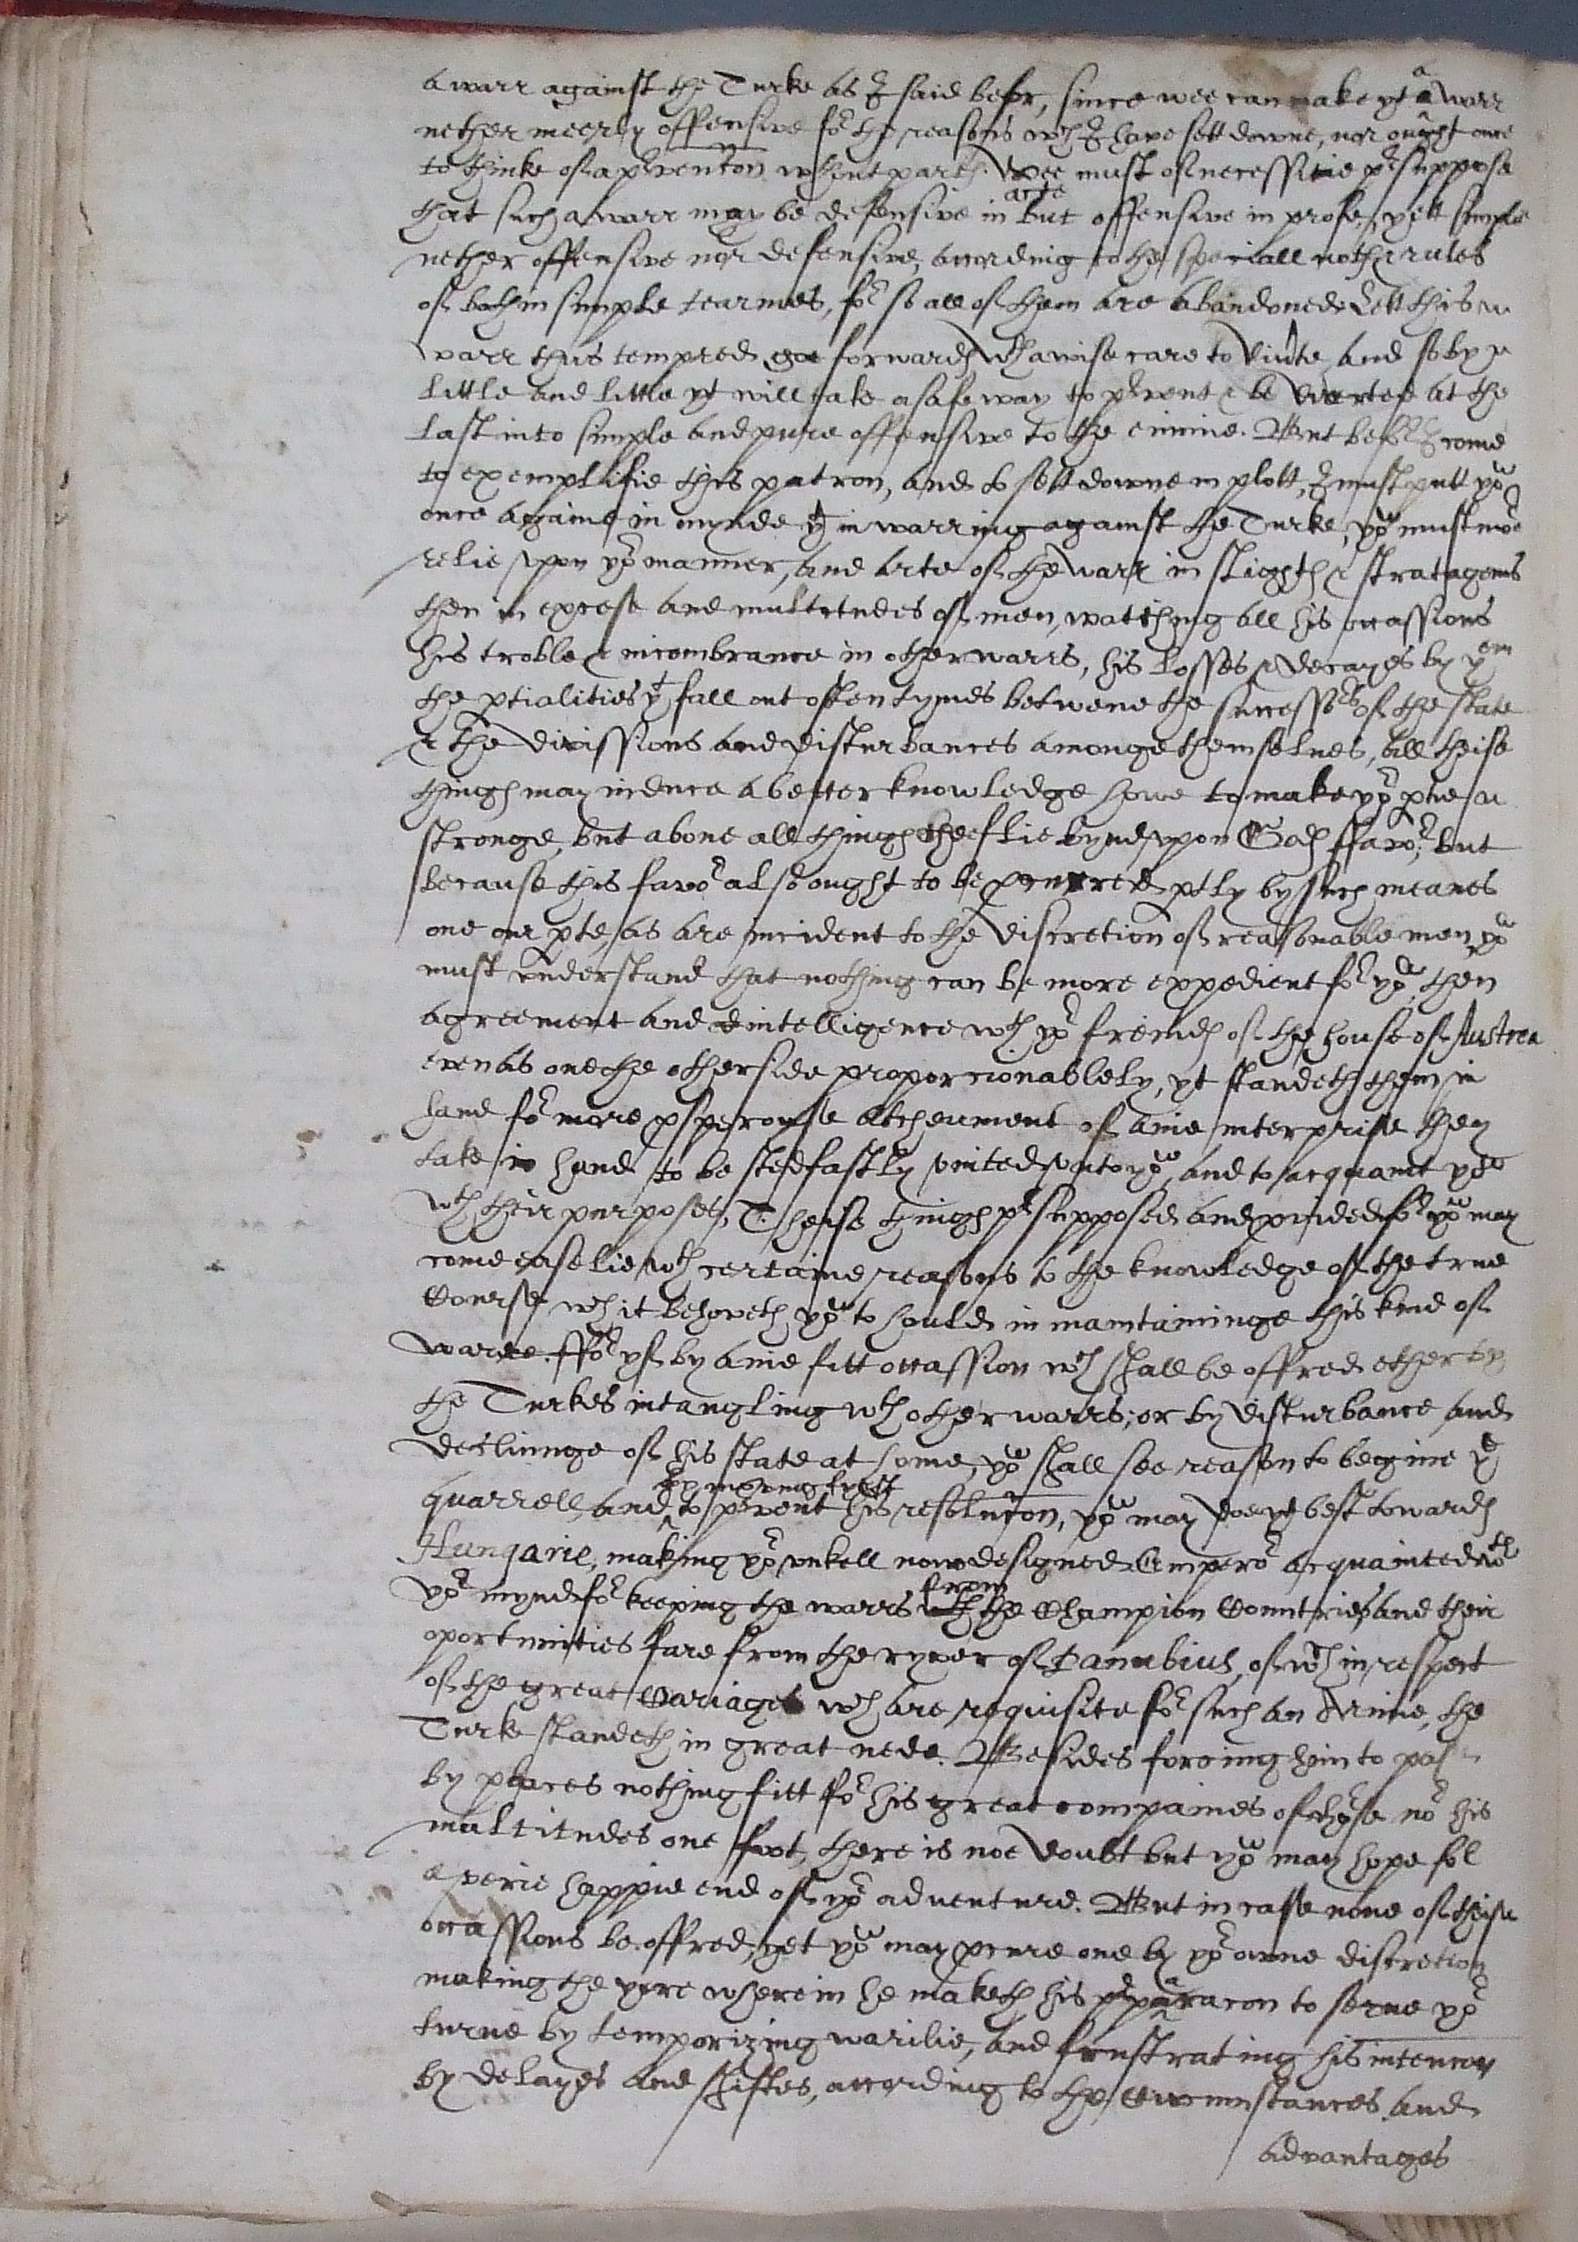 a warr against the Turke as I said befor, since wee can make yt a warr
nether meerly offensive for the reasons wch I have sett downe, nor ought once
to thinke of a prvention wthout parth. Wee must of necessitie prsuppose
that such a warr may be defensive in acte but offensive in profe, yett simple
nether offensive nor defensive, according to the speciall noth & rules
of both in simple tearmes, for so all of them are abandoned. Lett this
warr thus tempred goe forward wth a wise care to and so by
little and little yt will take a safe way to prvent & be verted at the
last into simple and pure offensive to the enimie. But befor I come
to exemplifie this patron, and to sett downe in plott, I must putt you
once againe in mynde yt in warring against the Turke, you must more
relie upon yor manner, and arte of the warr in slights & stratagems
then in excesse and multitudes of men, watching all his occassions
his troble & incombrance in other warrs, his losses & decayes by them
the ptialities yt fall out often tymes betwene the successors of the state
& the divissions and disturbances amonge themselues, all theise
things may induce a better knowledge howe to make yor ptie
stronge, but aboue all things cheeflie bynd upon Gods ffavor, but
because this favor also ought to be pcured ptly by such meanes
one our pte, as are incident to the discretion of reasonable men, you
must understand that nothing can be more expedient for you, then
agreement and intelligence wth yor frends of the house of Austrea
even as one the other side proporcionablely, yt standeth them in
hand for more psperouse atcheument of anie interprise they
take in hand to be stedfastly united unto you, and to acquaint you
wth their purposes, Theise things prsupposed and pvided for you may
come easelie wth certaine reasons to the knowledge of the true
Course wch it behoveth you to hould in maintaininge this kind of
warre. ffor yf by anie fitt occassion wch shall be offred ether by
the Turkes intangling wth other warrs, or by disturbance and
declininge of his state at home, you shall see reason to begine ye
quarrell, and by moving first to prvent his resolution, you may doe yt best towards
Hungarie, making yor unkell now designed Emperor acquainted wth
yor mynd for keeping the warrs from the Champion Countries and their
oportunities fare from the ryver of Danubius, of wch in respect
of the great Cariages wch are requisite for such an Armie, the
Turke standeth in great nede. Besides forcing him to pass
by places nothing fitt for his great companies of horse nor his
multitudes one foot, there is noe doubt but you may hope for
a verie happie end of yor adventure. But in casse none of theise
occassions be offred, yet you may pcure one by yor owne discretion
making the yere wherein he maketh his prparacon to serue yor
turne by temporizing warilie, and frustrating his intencon
by delayes and shiftes, according to the Circumstances and
advantages